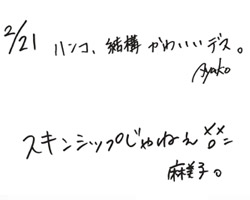 2/21
ハンコ、結構かわいいデス。
Ayako
スキンシップじゃねぇ
麻美子。